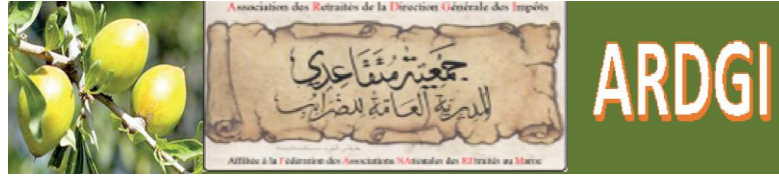 Association des Retraités de la Direction Générale des Impôts
جمعية متقاعدي
المديرية العامة للضرائب
Affiliée à la Fédération des Associations NAtionales des REtraités au Maroc
ARDGI